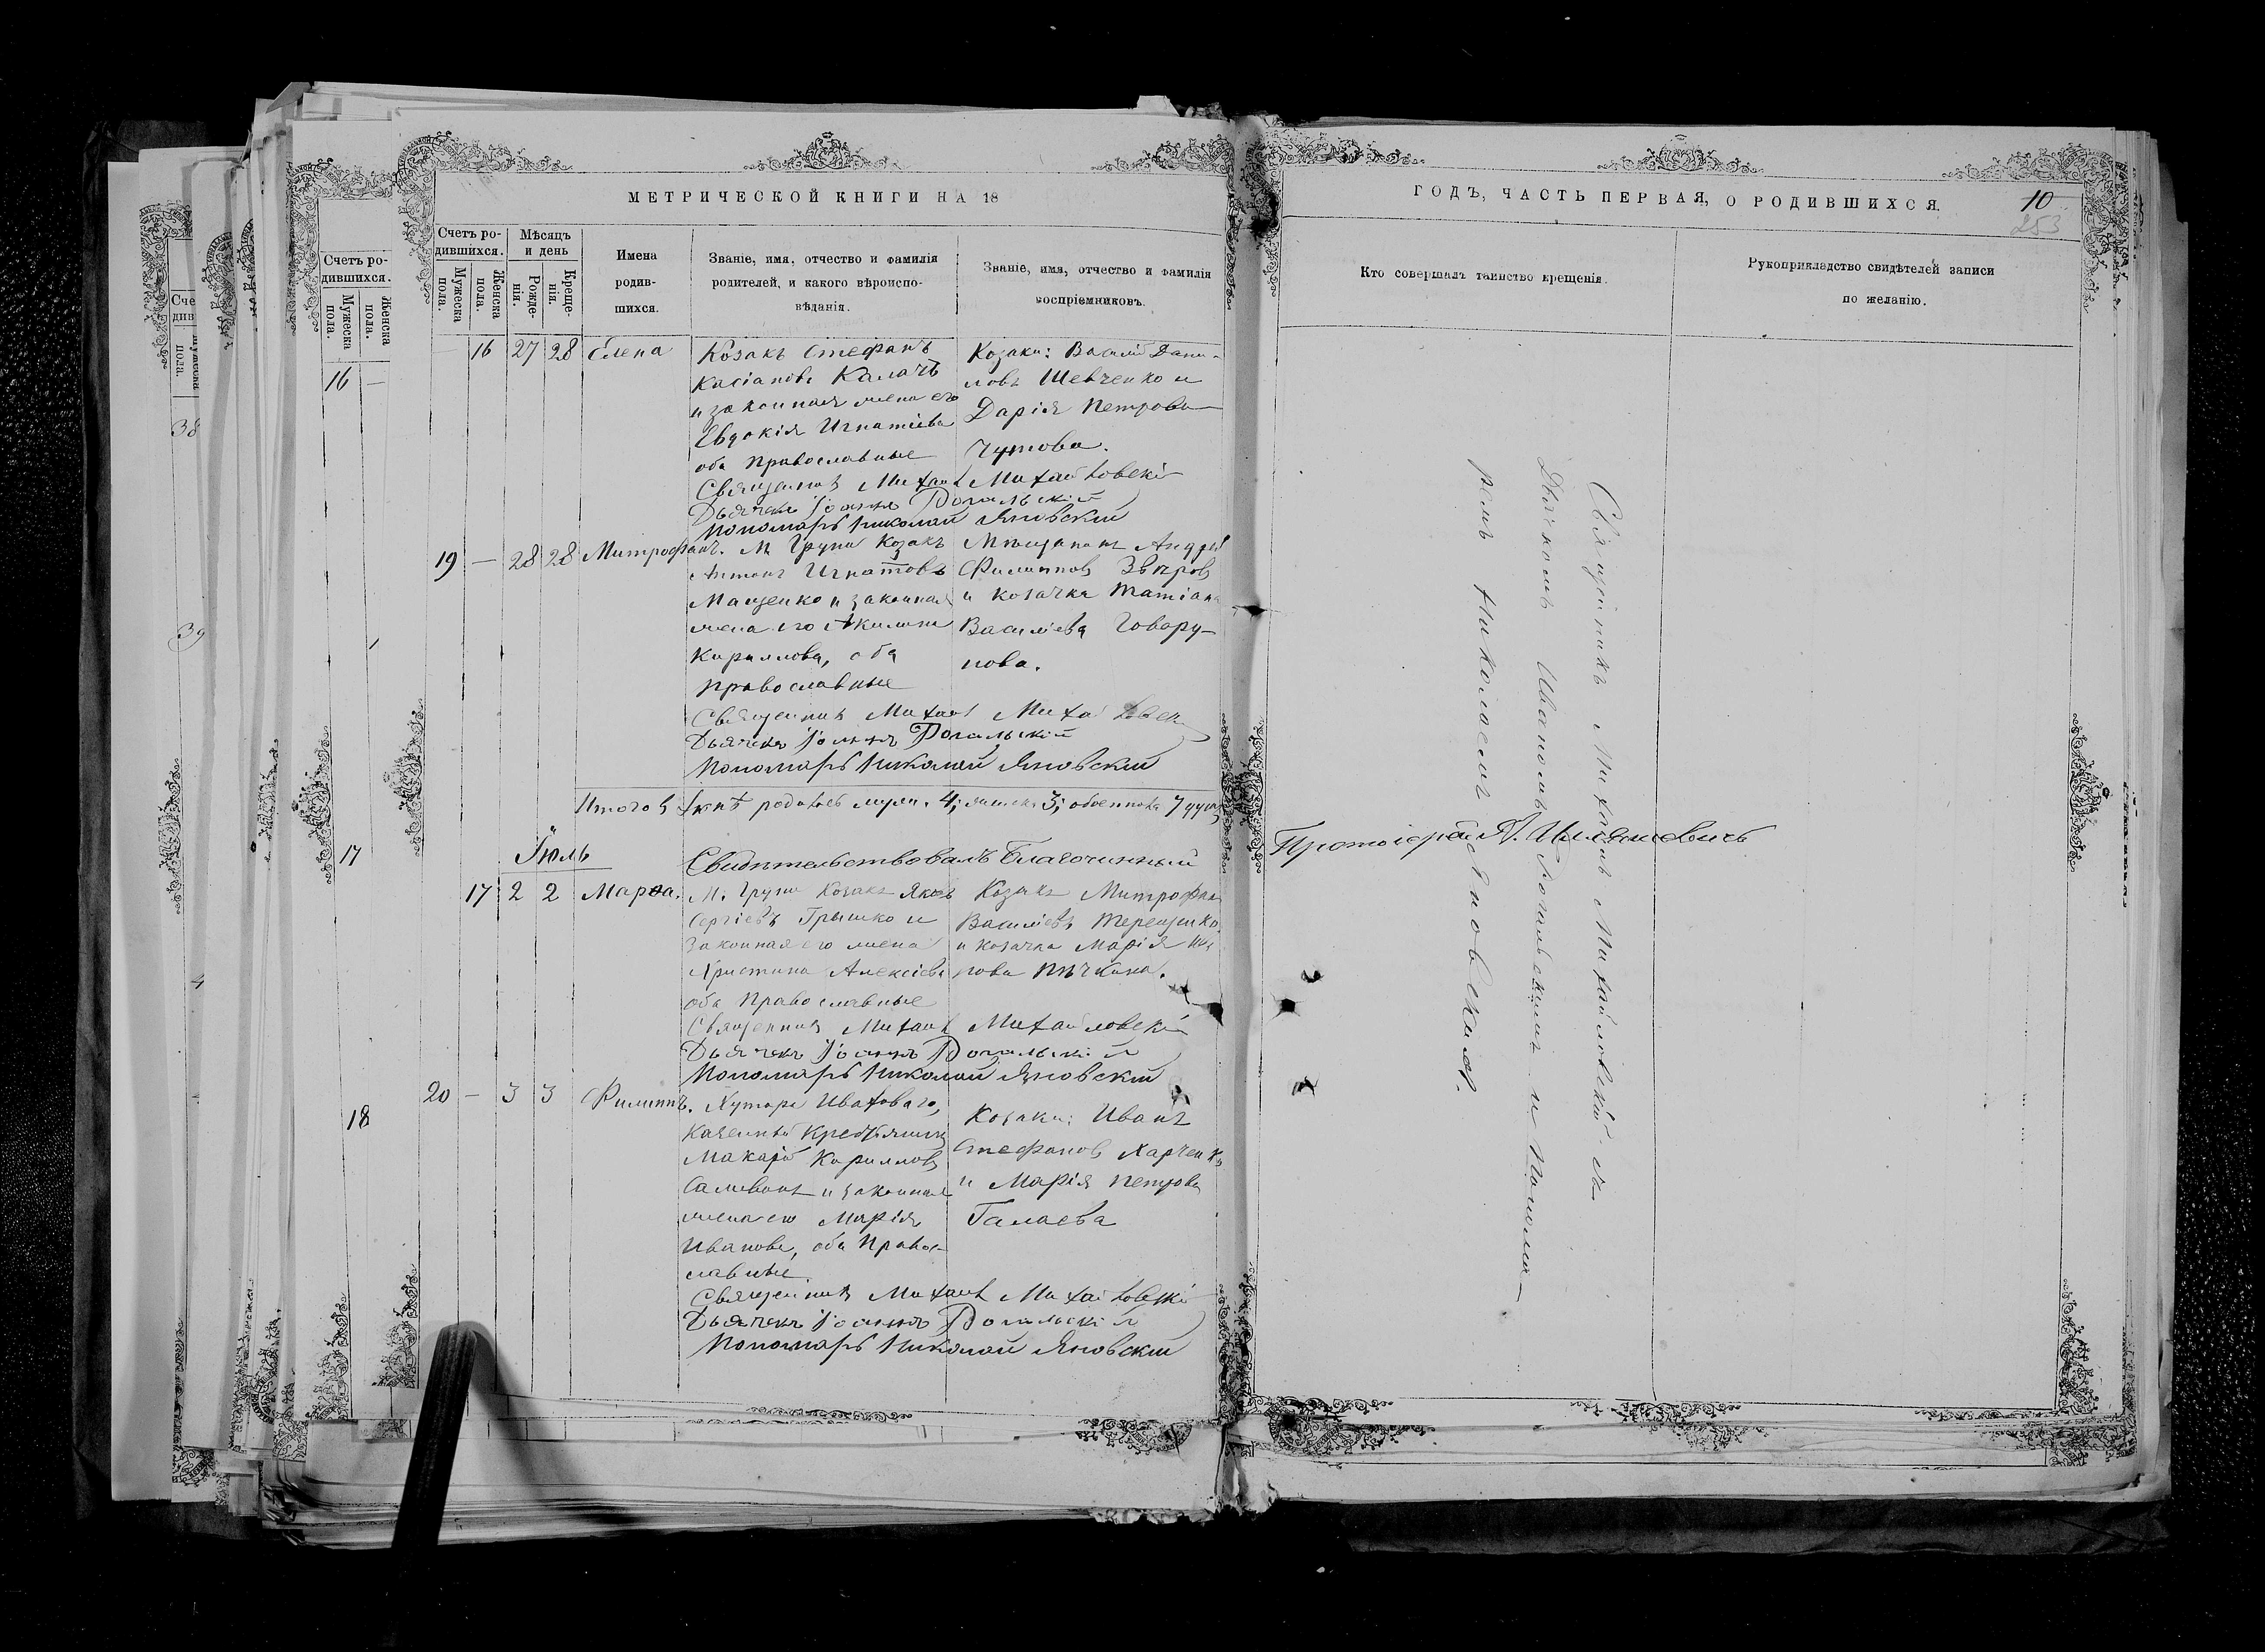 МЕТРИЧЕСКОЙ КНИГИ НА 18
Счетъ родившихся.
Мужеска пола.
Женска пола.
Мѣсяцъ и день
Рожденія.
Крещенія.
Имена родившихся.
Званіе, имя, отчество и фамилія родителей, и какого вѣроисповѣданія.
Званіе, имя, отчество и фамилія воспріемниковъ.
16 27 28 Елена
Козакъ Стефанъ
Касіановъ Калачъ
и законная жена его
Евдокія Игнатіева
оба православные
Козаки: Василій Дани-
ловъ Шевченко и
Дарія Петрова
Чутова.
Священникъ Михаилъ Михайловскій
Дьячекъ Іоаннъ Рогальскій
Пономарь Николай Яновскій
19 — 28 28 Митрофанъ.
М. Груни Козакъ
Антонъ Игнатовъ
Мащенко и законная
жена его Акилина
Кирилова, оба
православные
Мѣщанинъ Андрей
Филиповъ Звѣровъ
и козачка Татіана
Василіева Говору-
нова.
Священникъ Михаилъ Михайловскій
Дьячекъ Іоаннъ Рогальскій
Пономарь Николай Яновскій
Итого въ Іюнѣ родилось муж. 4; женск. 3; обоего пола 7 душъ
Іюль
Свидѣтельствовалъ Благочинный
17 2 2 Марѳа.
М. Груни Козакъ Яковъ
Сергіевъ Гришко и
законная его жена
Христина Алексіева
оба православные
Козакъ Митрофанъ
Василіевъ Терещенко
и козачка Марія Ива
нова
Священникъ Михаилъ Михайловскій
Дьячекъ Іоаннъ Рогальскій
Пономарь Николай Яновскій
20 — 3 3 Филиппъ.
Хутора Иваховаго,
Казенный крестьянинъ
Макарій Кириловъ
Саливонъ и законная
жена его Марія
Иванова, оба Право-
славные.
Козаки: Иванъ
Стефановъ Харченко
и Марія Петрова
Галаева
Священникъ Михаилъ Михайловскій
Дьячекъ Іоаннъ Рогальскій
Пономарь Николай Яновскій
ГОДЪ, ЧАСТЬ ПЕРВАЯ, О РОДИВШИХСЯ.
10
253
Кто совершалъ таинство крещенія.
Рукоприкладство свидѣтелей записи по желанію.
Священникъ Михаилъ Михайловскій съ
Дьячкомъ Иваномъ Рогальскимъ и Понома-
ремъ Николаемъ Яновскимъ.
Протоіерей
Счетъ родившихся.
Мужеска пола.
Женска пола.
16 —
17
18
38
39
4